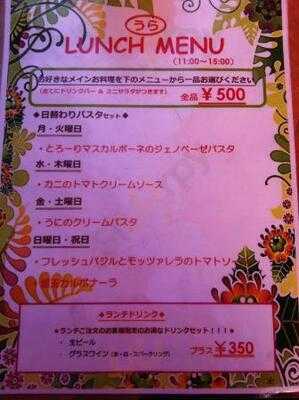 うら
LUNCH MENU
(11:00~15:00)
お好きなメインお料理を下のメニューから一品お選びください
(全てにドリンクバー & ミニサラダがつきます)
全品 ¥500
◆日替わりパスタセット◆
月・火曜日
・とろーりマスカルポーネのジェノベーゼパスタ
水・木曜日
・カニのトマトクリームソース
金・土曜日
・うにのクリームパスタ
日曜日・祝日
・フレッシュバジルとモッツァレラのトマトソー
カルボナーラ
◆ランチドリンク◆
★ランチご注文のお客様限定のお得なドリンクセット!!!★
・ 生ビール
・ グラスワイン (赤・白・スパークリング)
プラス ¥350